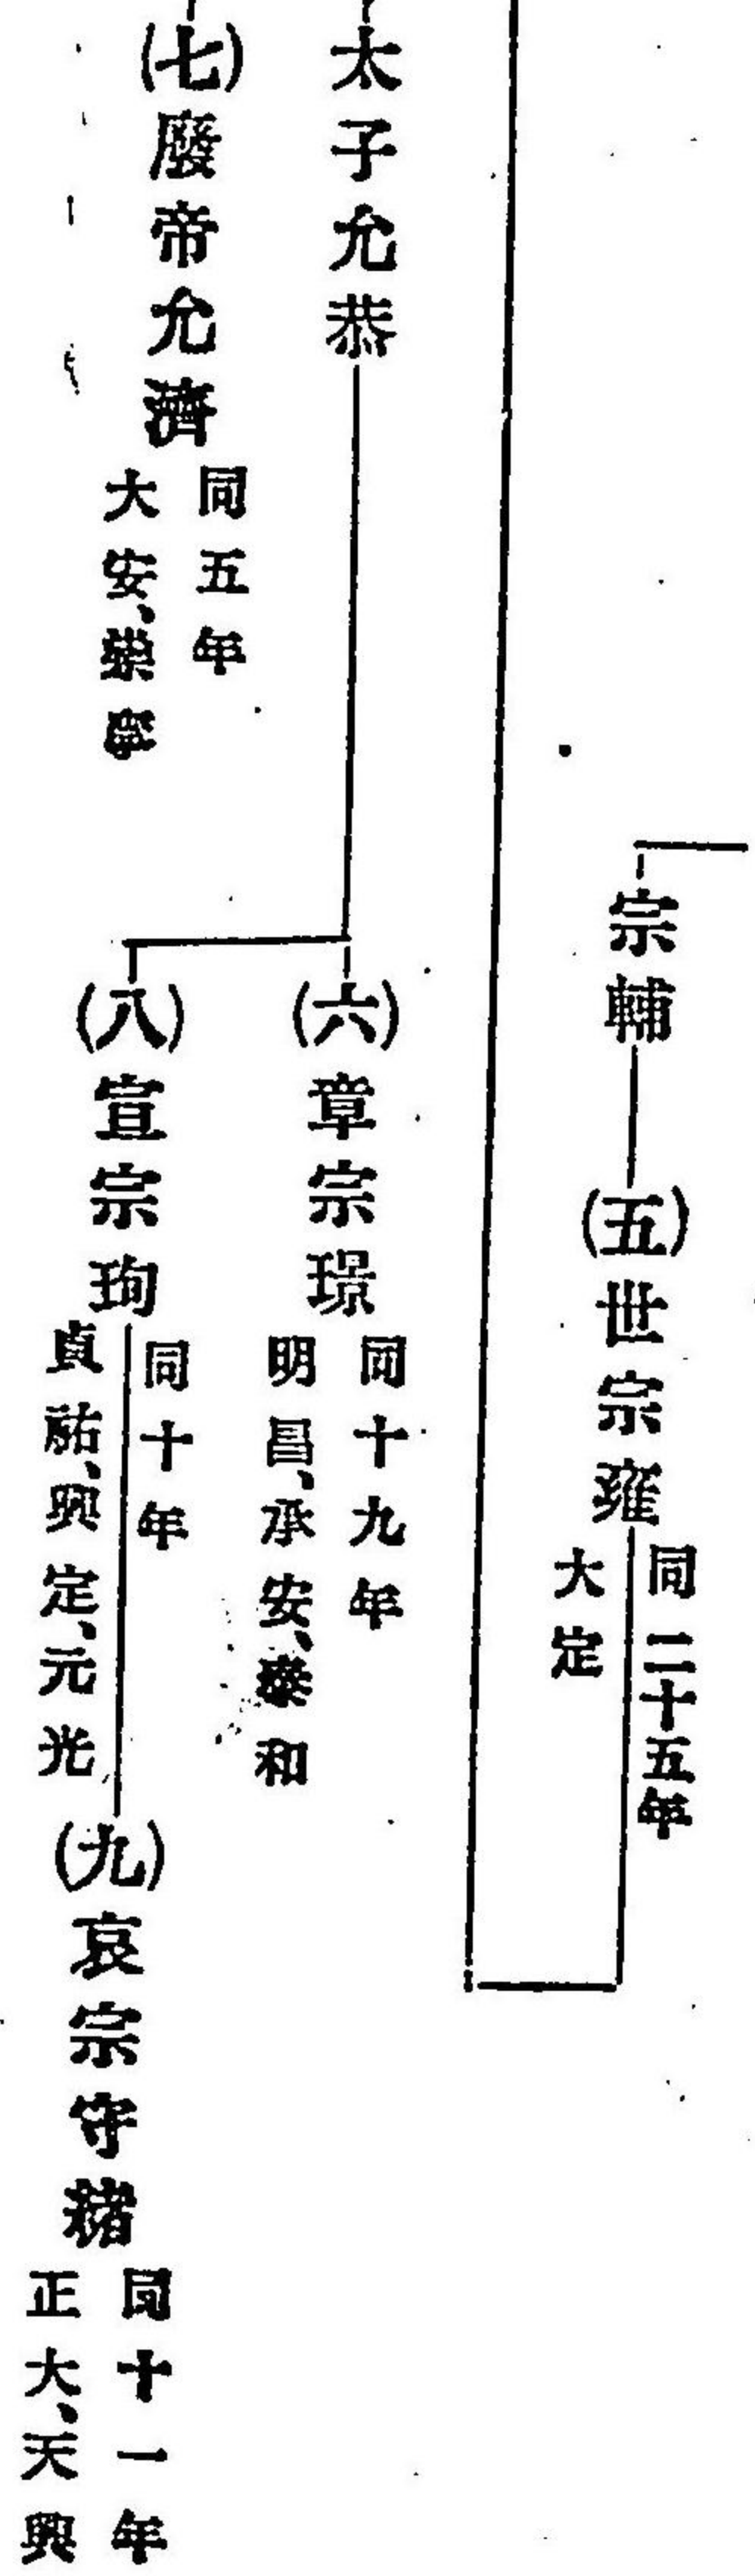 宗輔
(五)世宗雍
同二十五年
大定
太子允恭
(六)章宗璟
同十九年
明昌、承安、泰和
(七)廢帝允濟
同五年
大安、崇寧
(八)宣宗珣
同十年
貞祐、興定、元光
(九)哀宗守緒
同十一年
正大、天興